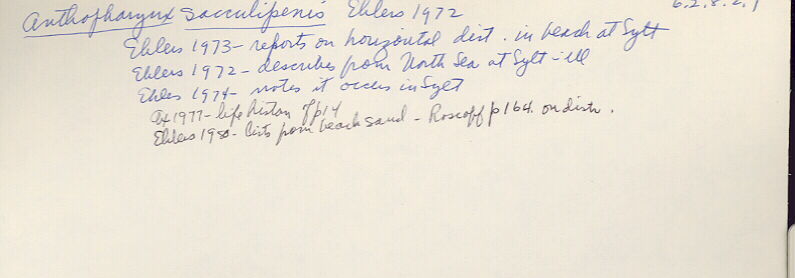 Anthopharynx sacculipenis Ehlers 1972
6.2.8.2.1
Ehlers 1973- reports on horizontal dist. in beach at Sylt
Ehlers 1972- describes from North Sea at Sylt - ill
Ehlers 1974- notes it occurs in Sylt
Ax 1977- life history p14
Ehlers 1980- lists from beach sand - Roscoff p 164. on distr.